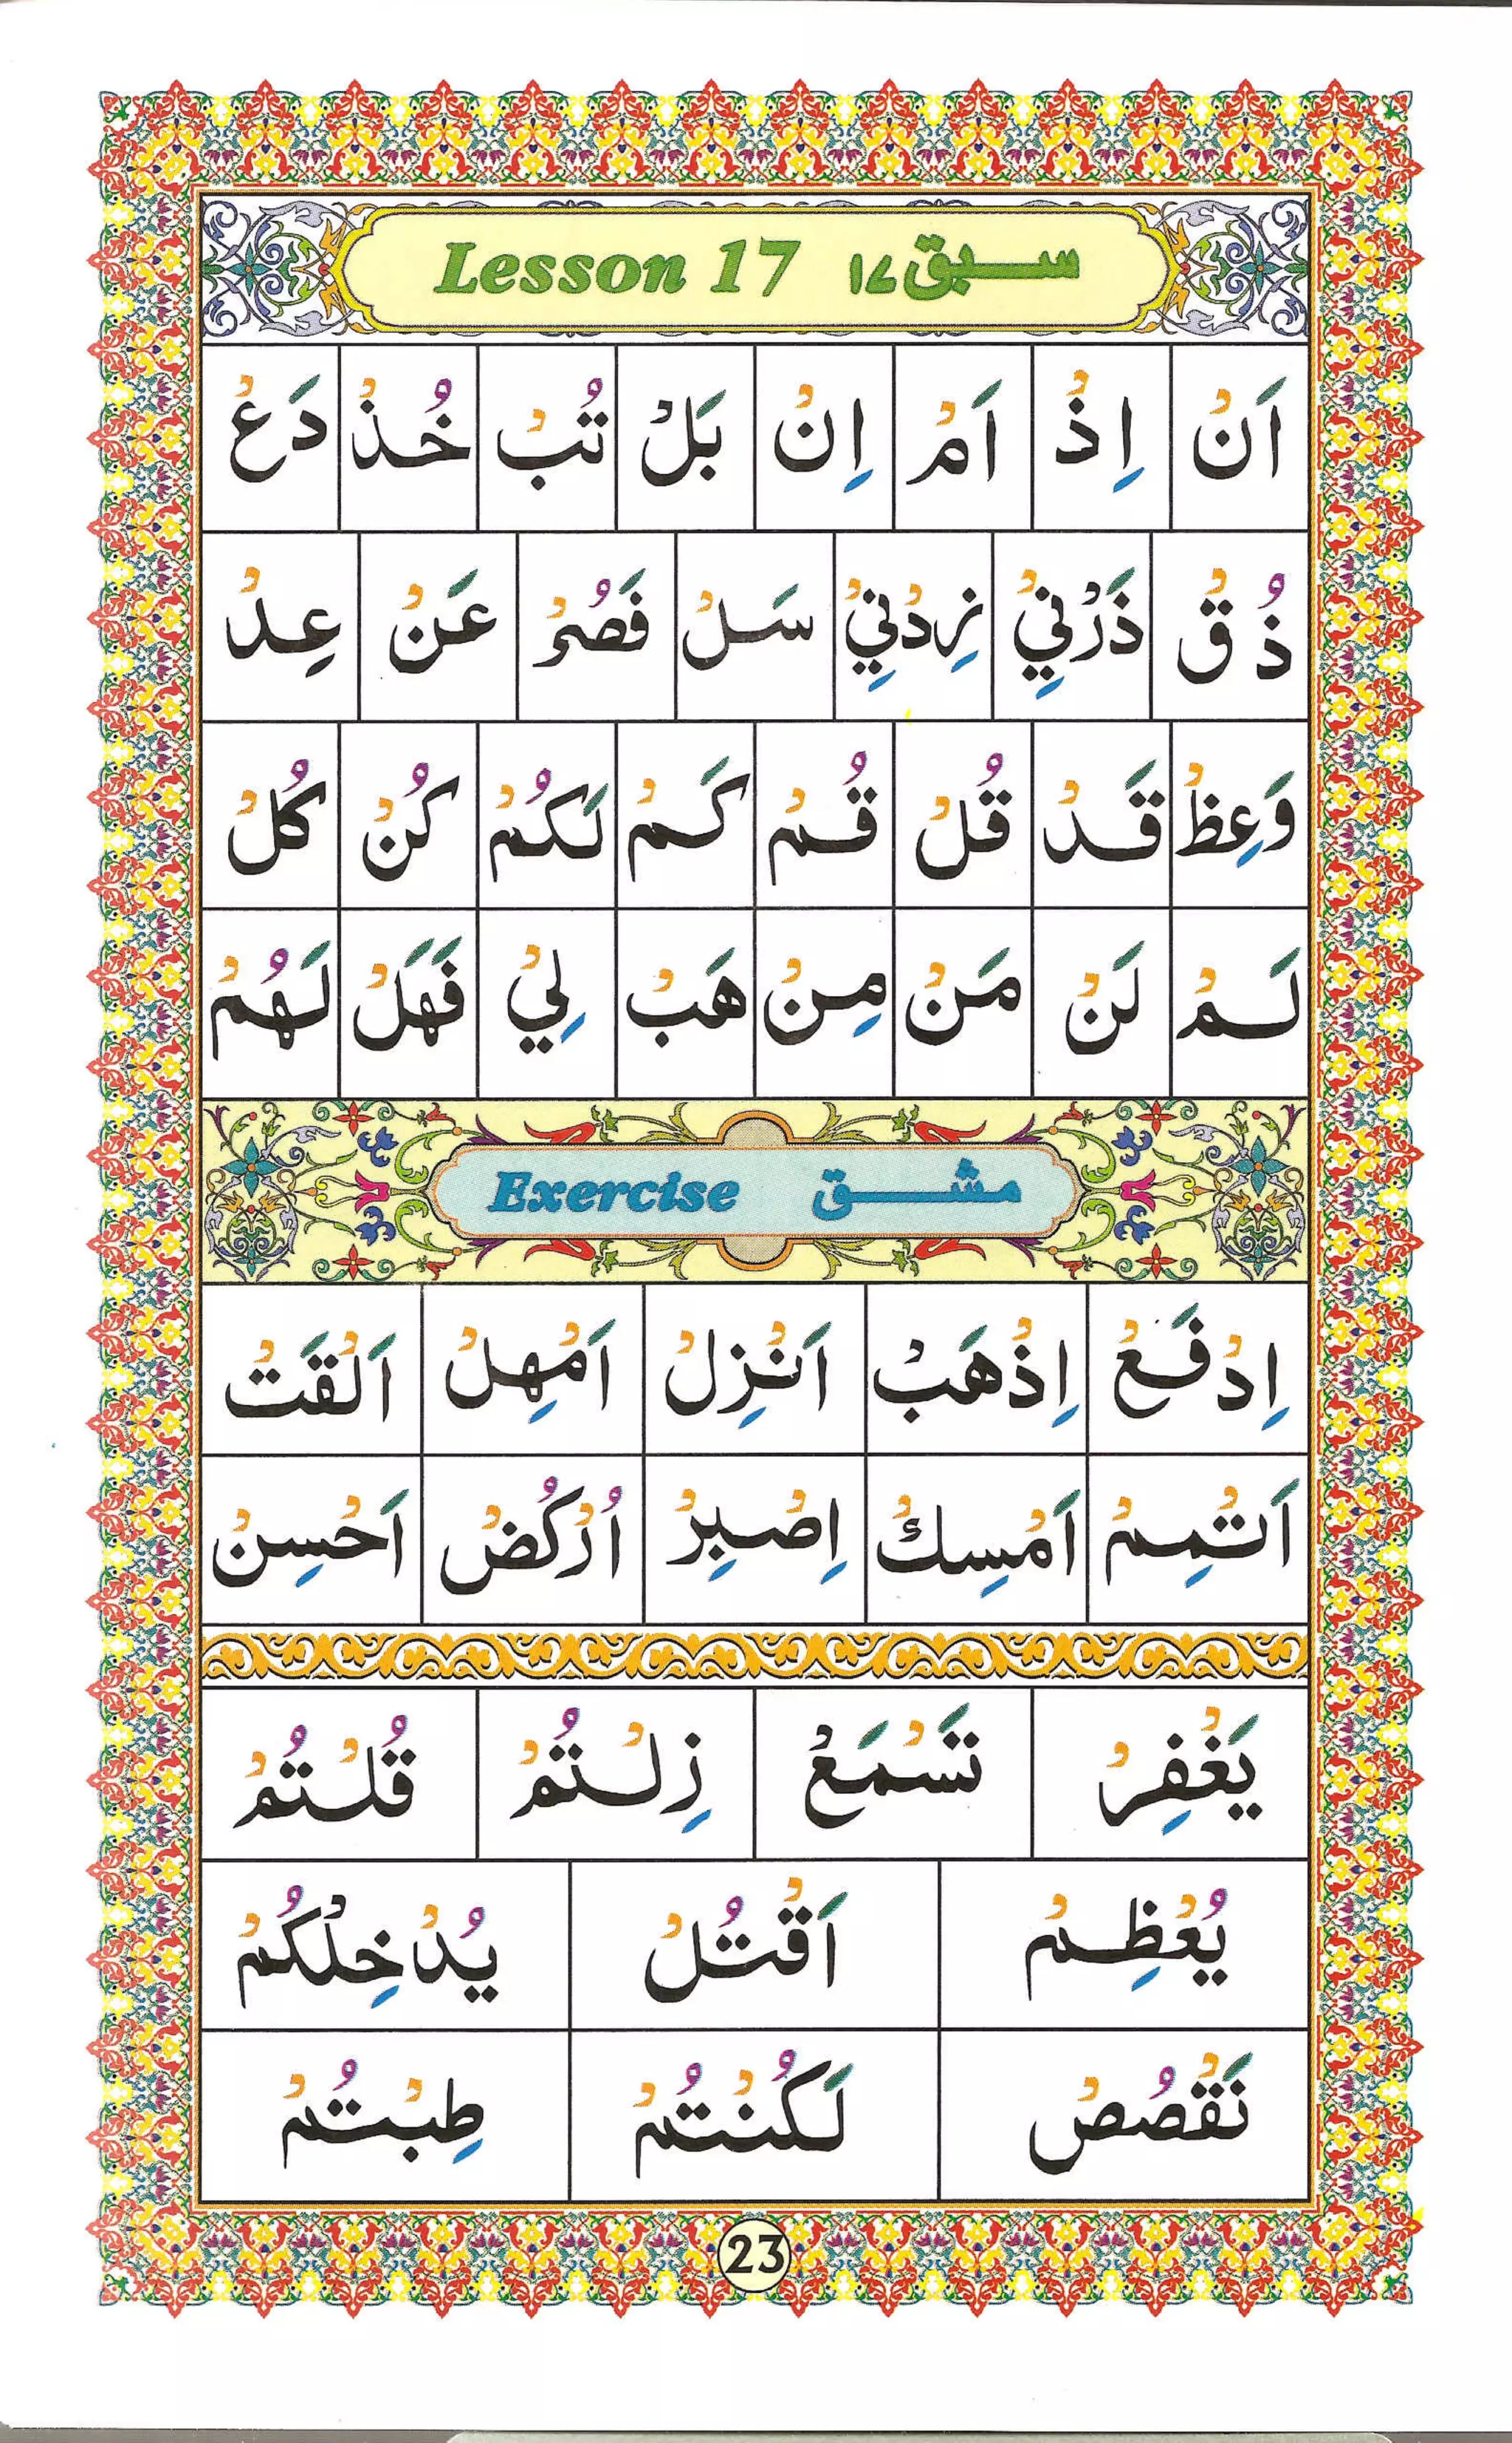 Lesson 17 سبق ١٧
اَنْ اِذْ اَمْ اِنْ بَلْ تُبْ خُذْ دَعْ
ذُقْ ذَرْنِيْ زِدْنِيْ سَلْ فَصُرْ عَنْ عِدْ
وَعِظْ قَدْ قُلْ قُمْ كَمْ لَكُمْ كُنْ كُلْ
لَمْ لَنْ مَنْ مِنْ هَبْ لِيْ فَهَلْ لَهُمْ
Exercise مشق
اِدْفَعْ اِذْهَبْ اَنْزِلْ اَمْهِلْ اَلْقَتْ
اَتْمِمْ اَمْسِكْ اِصْبِرْ اُرْكُضْ اَحْسِنْ
يَغْفِرْ تَسْمَعْ زِلْتُمْ قُلْتُمْ
يُعْظِمْ اَقْتُلْ يُدْخِلْكُمْ
نَقْصُصْ لَكُنْتُمْ طِبْتُمْ
23